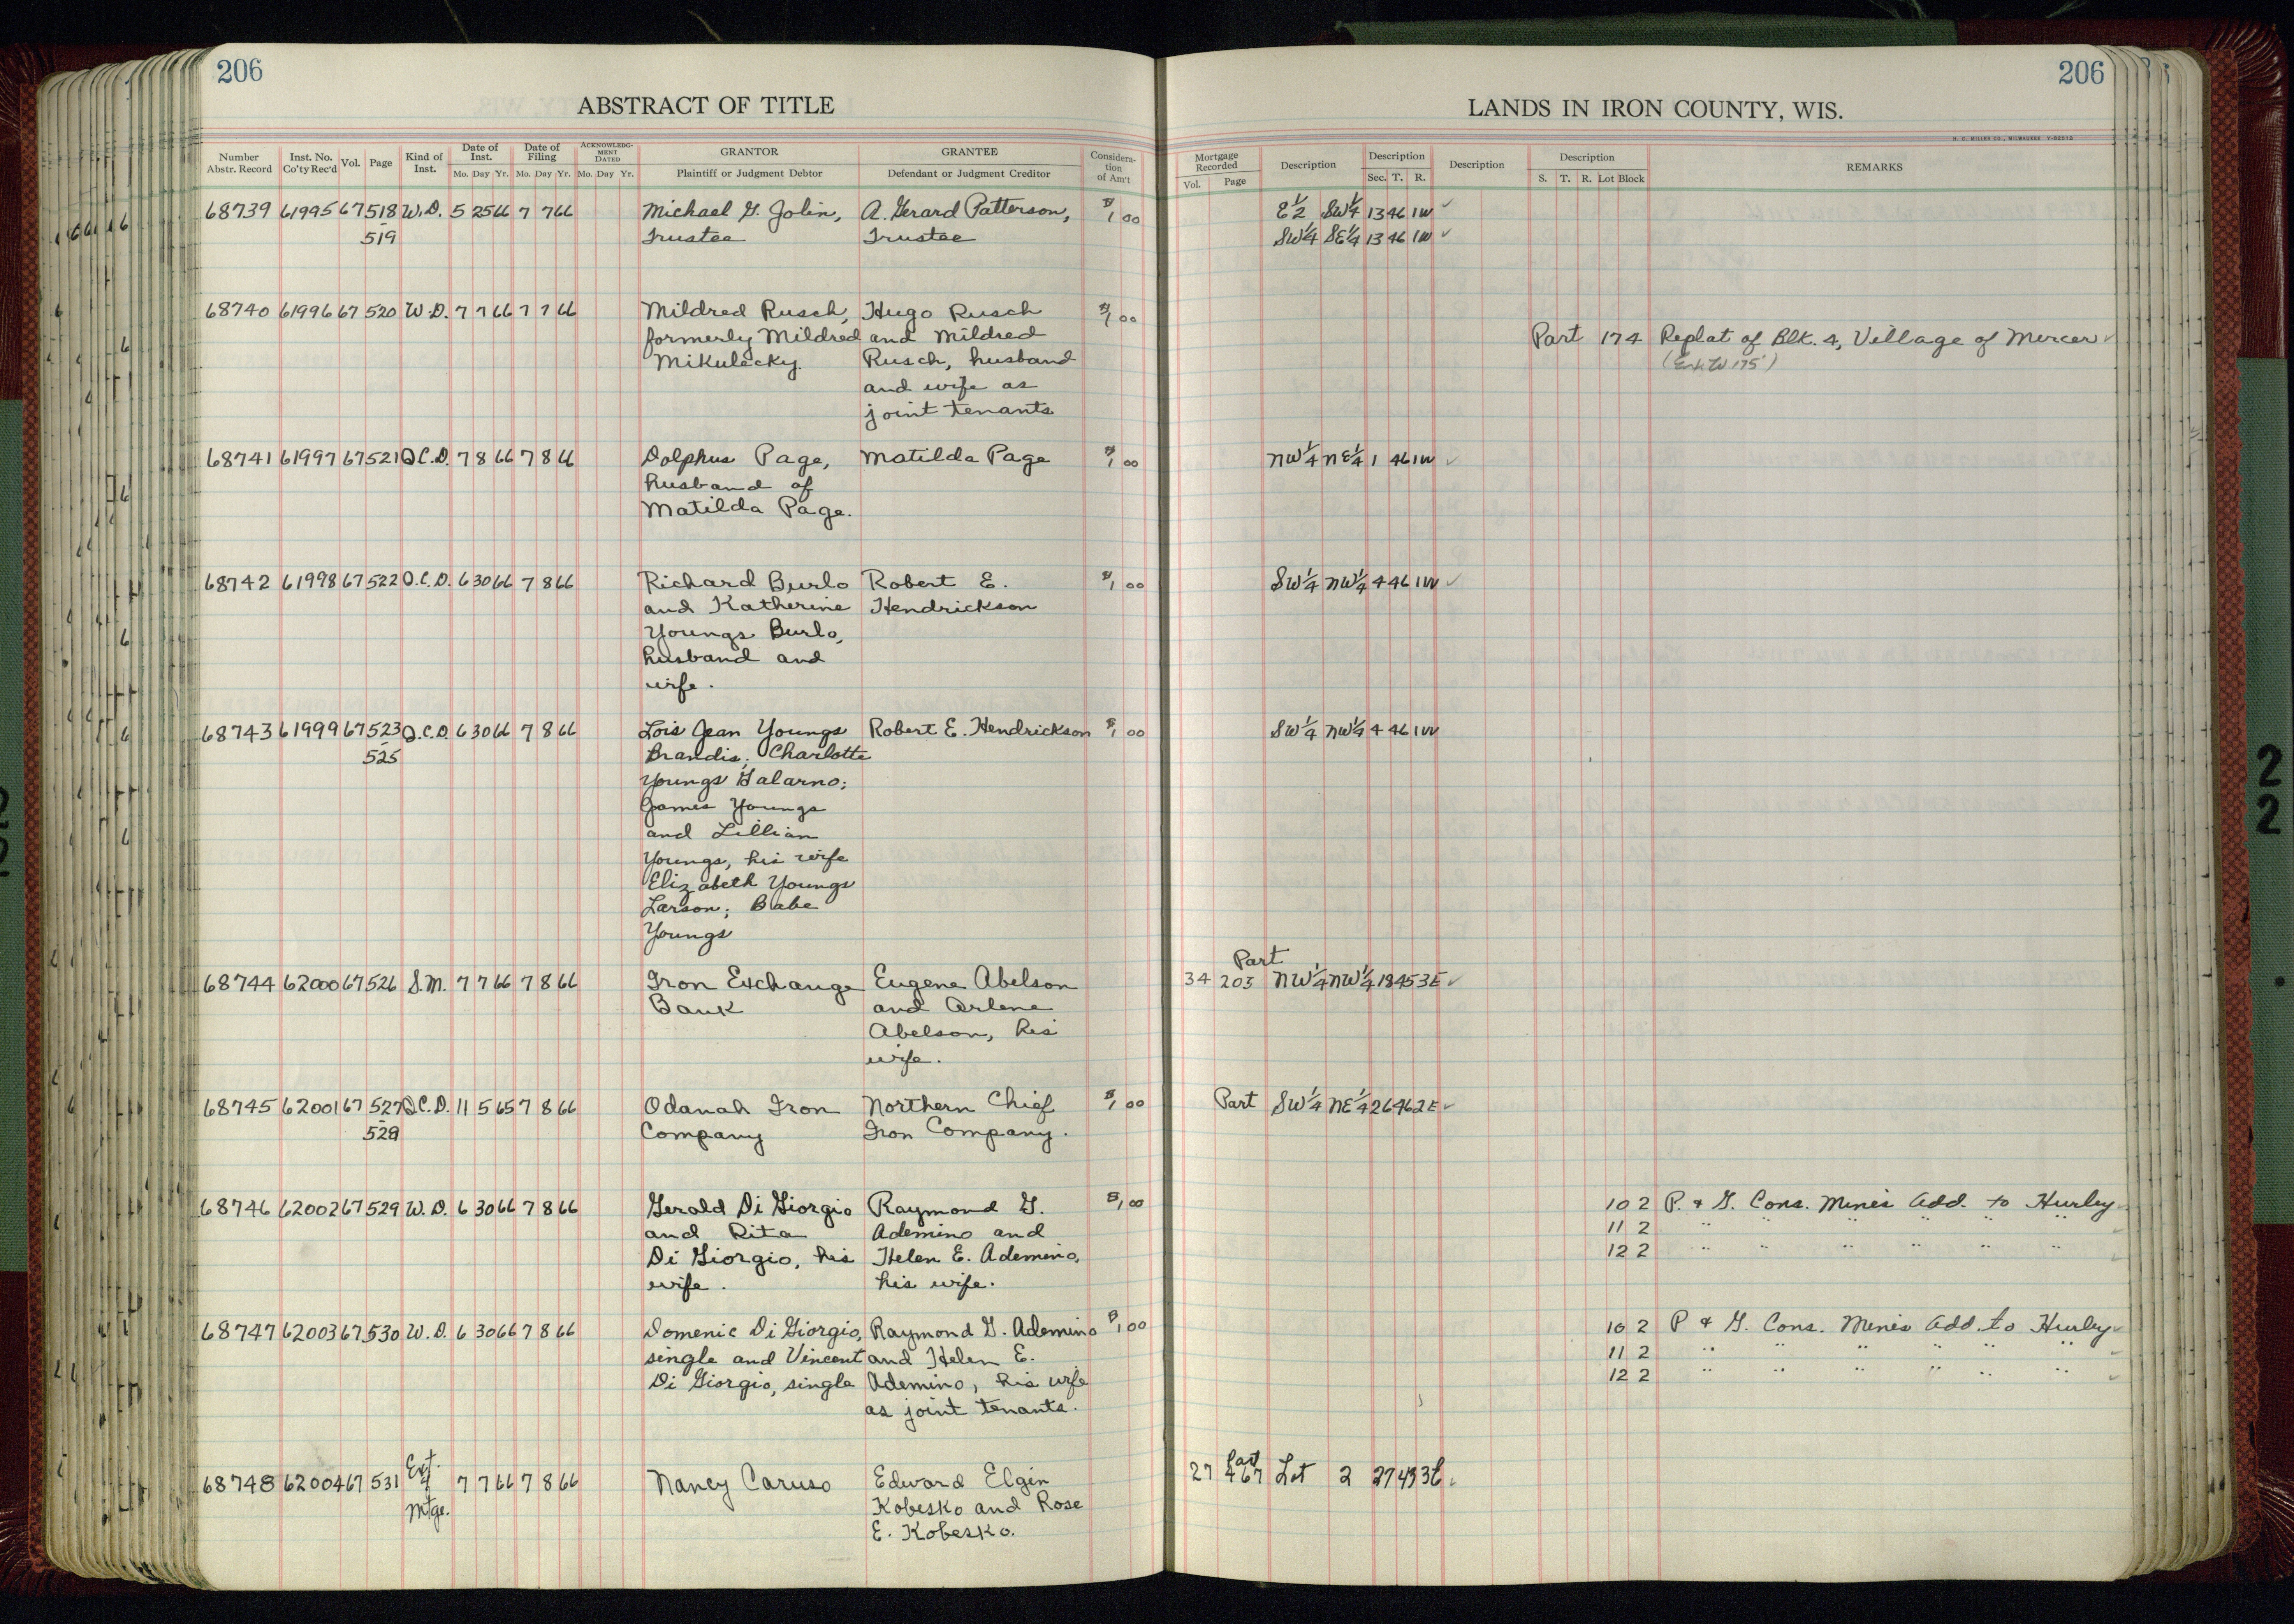 206
ABSTRACT OF TITLE
Number Abstr. Record Inst. No. Co'ty Rec'd Vol. Page Kind of Inst. Date of Inst. Mo. Day Yr. Date of Filing Mo. Day Yr. ACKNOWLEDGMENT DATED Mo. Day Yr. GRANTOR Plaintiff or Judgment Debtor GRANTEE Defendant or Judgment Creditor Considera-tion of Am't
68739 61995 67 518 W.D. 5 25 66 7 7 66 Michael G. Jolin, A. Gerard Patterson, $1 00
519 Trustee Trustee
68740 61996 67 520 W.D. 7 7 66 7 7 66 Mildred Rusch, Hugo Rusch $1 00
formerly Mildred and Mildred
Mikulecky. Rusch, husband
and wife as
joint tenants
68741 61997 67 521 Q.C.D. 7 8 66 7 8 66 Dolphus Page, Matilda Page $1 00
husband of
Matilda Page.
68742 61998 67 522 Q.C.D. 6 30 66 7 8 66 Richard Burlo Robert E. $1 00
and Katherine Hendrickson
Youngs Burlo,
husband and
wife.
68743 61999 67 523 Q.C.D. 6 30 66 7 8 66 Lois Jean Youngs Robert E. Hendrickson $1 00
525 Brandis; Charlotte
Youngs Galarno;
James Youngs
and Lillian
Youngs, his wife
Elizabeth Youngs
Larson; Babe
Youngs
68744 62000 67 526 S.M. 7 7 66 7 8 66 Iron Exchange Eugene Abelson
Bank and Arlene
Abelson, his
wife.
68745 62001 67 527 Q.C.D. 11 5 65 7 8 66 Odanah Iron Northern Chief $1 00
528 Company Iron Company.
68746 62002 67 529 W.D. 6 30 66 7 8 66 Gerald Di Giorgio Raymond G. $1 00
and Rita Ademino and
Di Giorgio, his Helen E. Ademino,
wife. his wife.
68747 62003 67 530 W.D. 6 30 66 7 8 66 Domenic Di Giorgio, Raymond G. Ademino $1 00
single and Vincent and Helen E.
Di Giorgio, single Ademino, his wife
as joint tenants.
Ext.
68748 62004 67 531 of 7 7 66 7 8 66 Nancy Caruso Edward Elgin
Mtge. Kobesko and Rose
E. Kobesko.
206
LANDS IN IRON COUNTY, WIS.
H. C. MILLER CO., MILWAUKEE
Mortgage Recorded Vol. Page Description Description Sec. T. R. Description Description S. T. R. Lot Block REMARKS
E½ SW¼ 13 46 1W ✓
SW¼ SE¼ 13 46 1W ✓
Part 174 Replat of Blk. 4, Village of Mercer ✓
NW¼ NE¼ 1 46 1W ✓
SW¼ NW¼ 4 46 1W ✓
SW¼ NW¼ 4 46 1W
Part
34 203 NW¼ NW¼ 18 45 3E ✓
Part SW¼ NE¼ 26 46 2E ✓
10 2 P. & G. Cons. Mines Add. to Hurley ✓
11 2 " " " " " " ✓
12 2 " " " " " " ✓
10 2 P & G. Cons. Mines Add. to Hurley ✓
11 2 " " " " " " ✓
12 2 " " " " " " ✓
Part
27 467 Lot 2 27 43 3E ✓
2
2